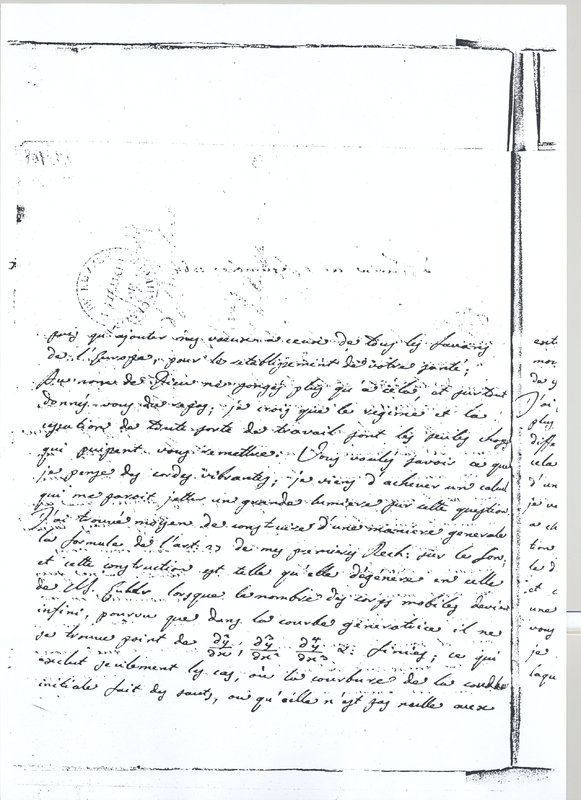 puis qu'ajouter mes voeux a ceux de tous les savans
de l'Europe, pour le retablissement de votre santé;
Au nom de Dieu ne songez plus qu'a cela et surtout
donnez-vous du repos; je crois que le regime et la
cessation de toute sorte de travail sont les seules choses
qui puissent vous remettre. Vous voulez savoir ce que
je pense des cordes vibrantes; je viens d'achever un calcul
qui me paroit jetter une grande lumiere sur cette question.
J'ai trouvé moyen de construire d'une maniere generale
la formule de l'art. 23 de mes premieres Rech: sur le Son,
et cette construction est telle qu'elle dégénère en celle
de M. Euler lorsque le nombre des corps mobiles devient
infini, pourvu que dans la courbe génératrice il ne
se trouve point de finies; ce qui
exclut seulement les cas, où la courbure de la courbe
initiale fait des sauts, ou qu'elle n'est pas nulle aux
J'ai
plus
cela
d'un
je
et
une
vous
je